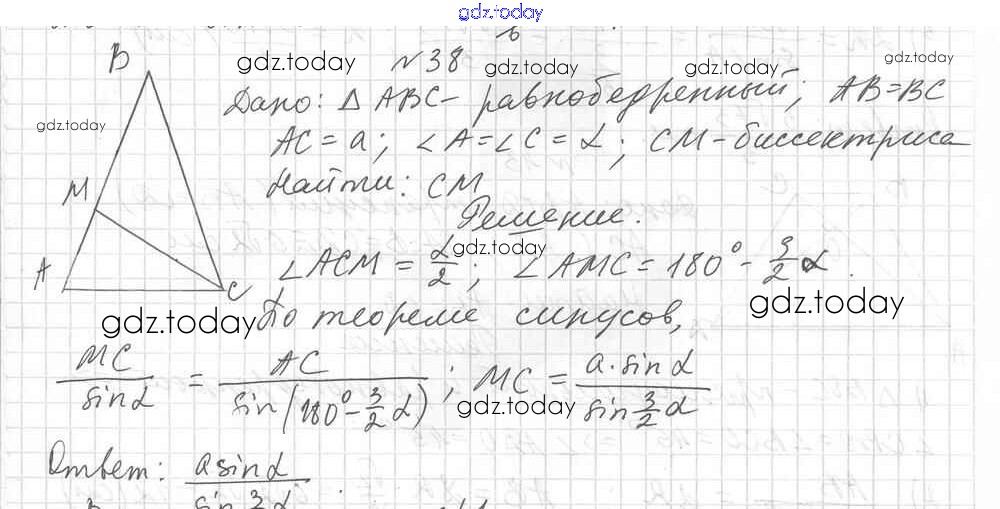 gdz.today
№38
gdz.today gdz.today gdz.today gdz.today
Дано: △ ABC - равнобедренный; AB=BC
gdz.today
AC = a; ∠A=∠C = α; CM - биссектриса
Найти: CM
Решение.
gdz.today
∠ACM = α/2; ∠AMC = 180° - 3/2 α.
gdz.today gdz.today
По теореме синусов,
MC/sin α = AC/sin(180° - 3/2 α); MC = a·sin α/sin 3/2 α
gdz.today
Ответ: a sin α/sin 3/2 α
B
M
A
C